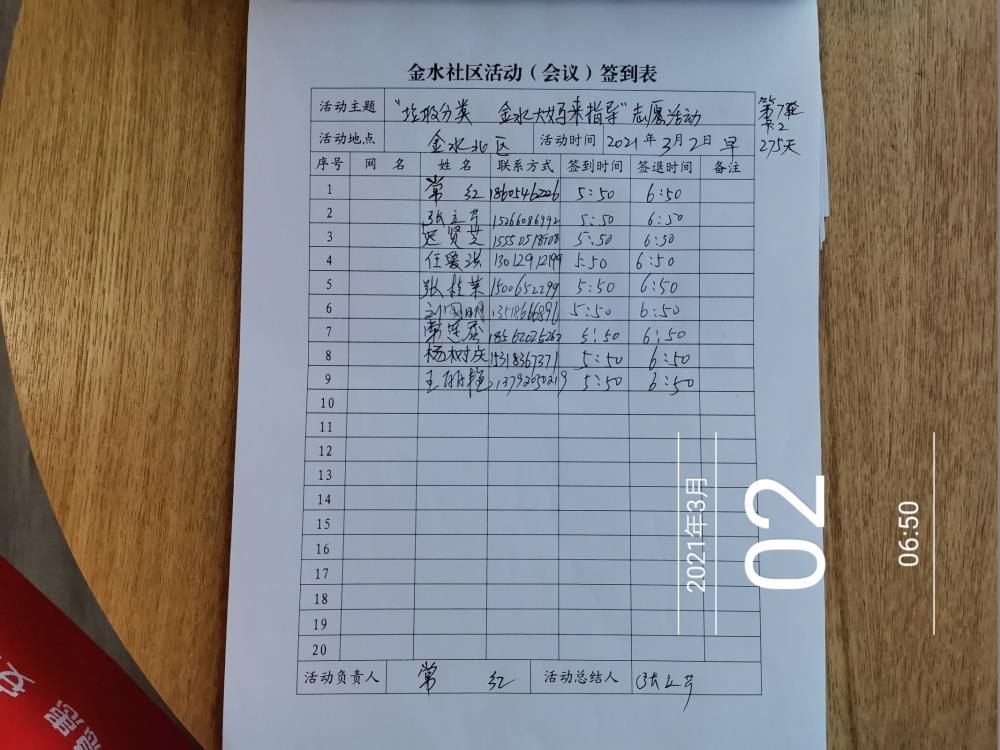 金水社区活动（会议）签到表
活动主题 “垃圾分类 金水大妈来指导”志愿活动
第7季
卡2
275天
活动地点 金水北区 活动时间 2021年3月2日早
序号 网名 姓名 联系方式 签到时间 签退时间 备注
1 常红 5:50 6:50
2 张立芹 15266086992 5:50 6:50
3 迟贤芝 5:50 6:50
4 任爱洪 13012912199 5:50 6:50
5 张桂荣 5:50 6:50
6 刘国明 5:50 6:50
7 5:50 6:50
8 杨树庆 5:50 6:50
9 王丽艳 5:50 6:50
10
11
12
13
14
15
16
17
18
19
20
活动负责人 常红 活动总结人 张立芹
2021年3月
02
06:50